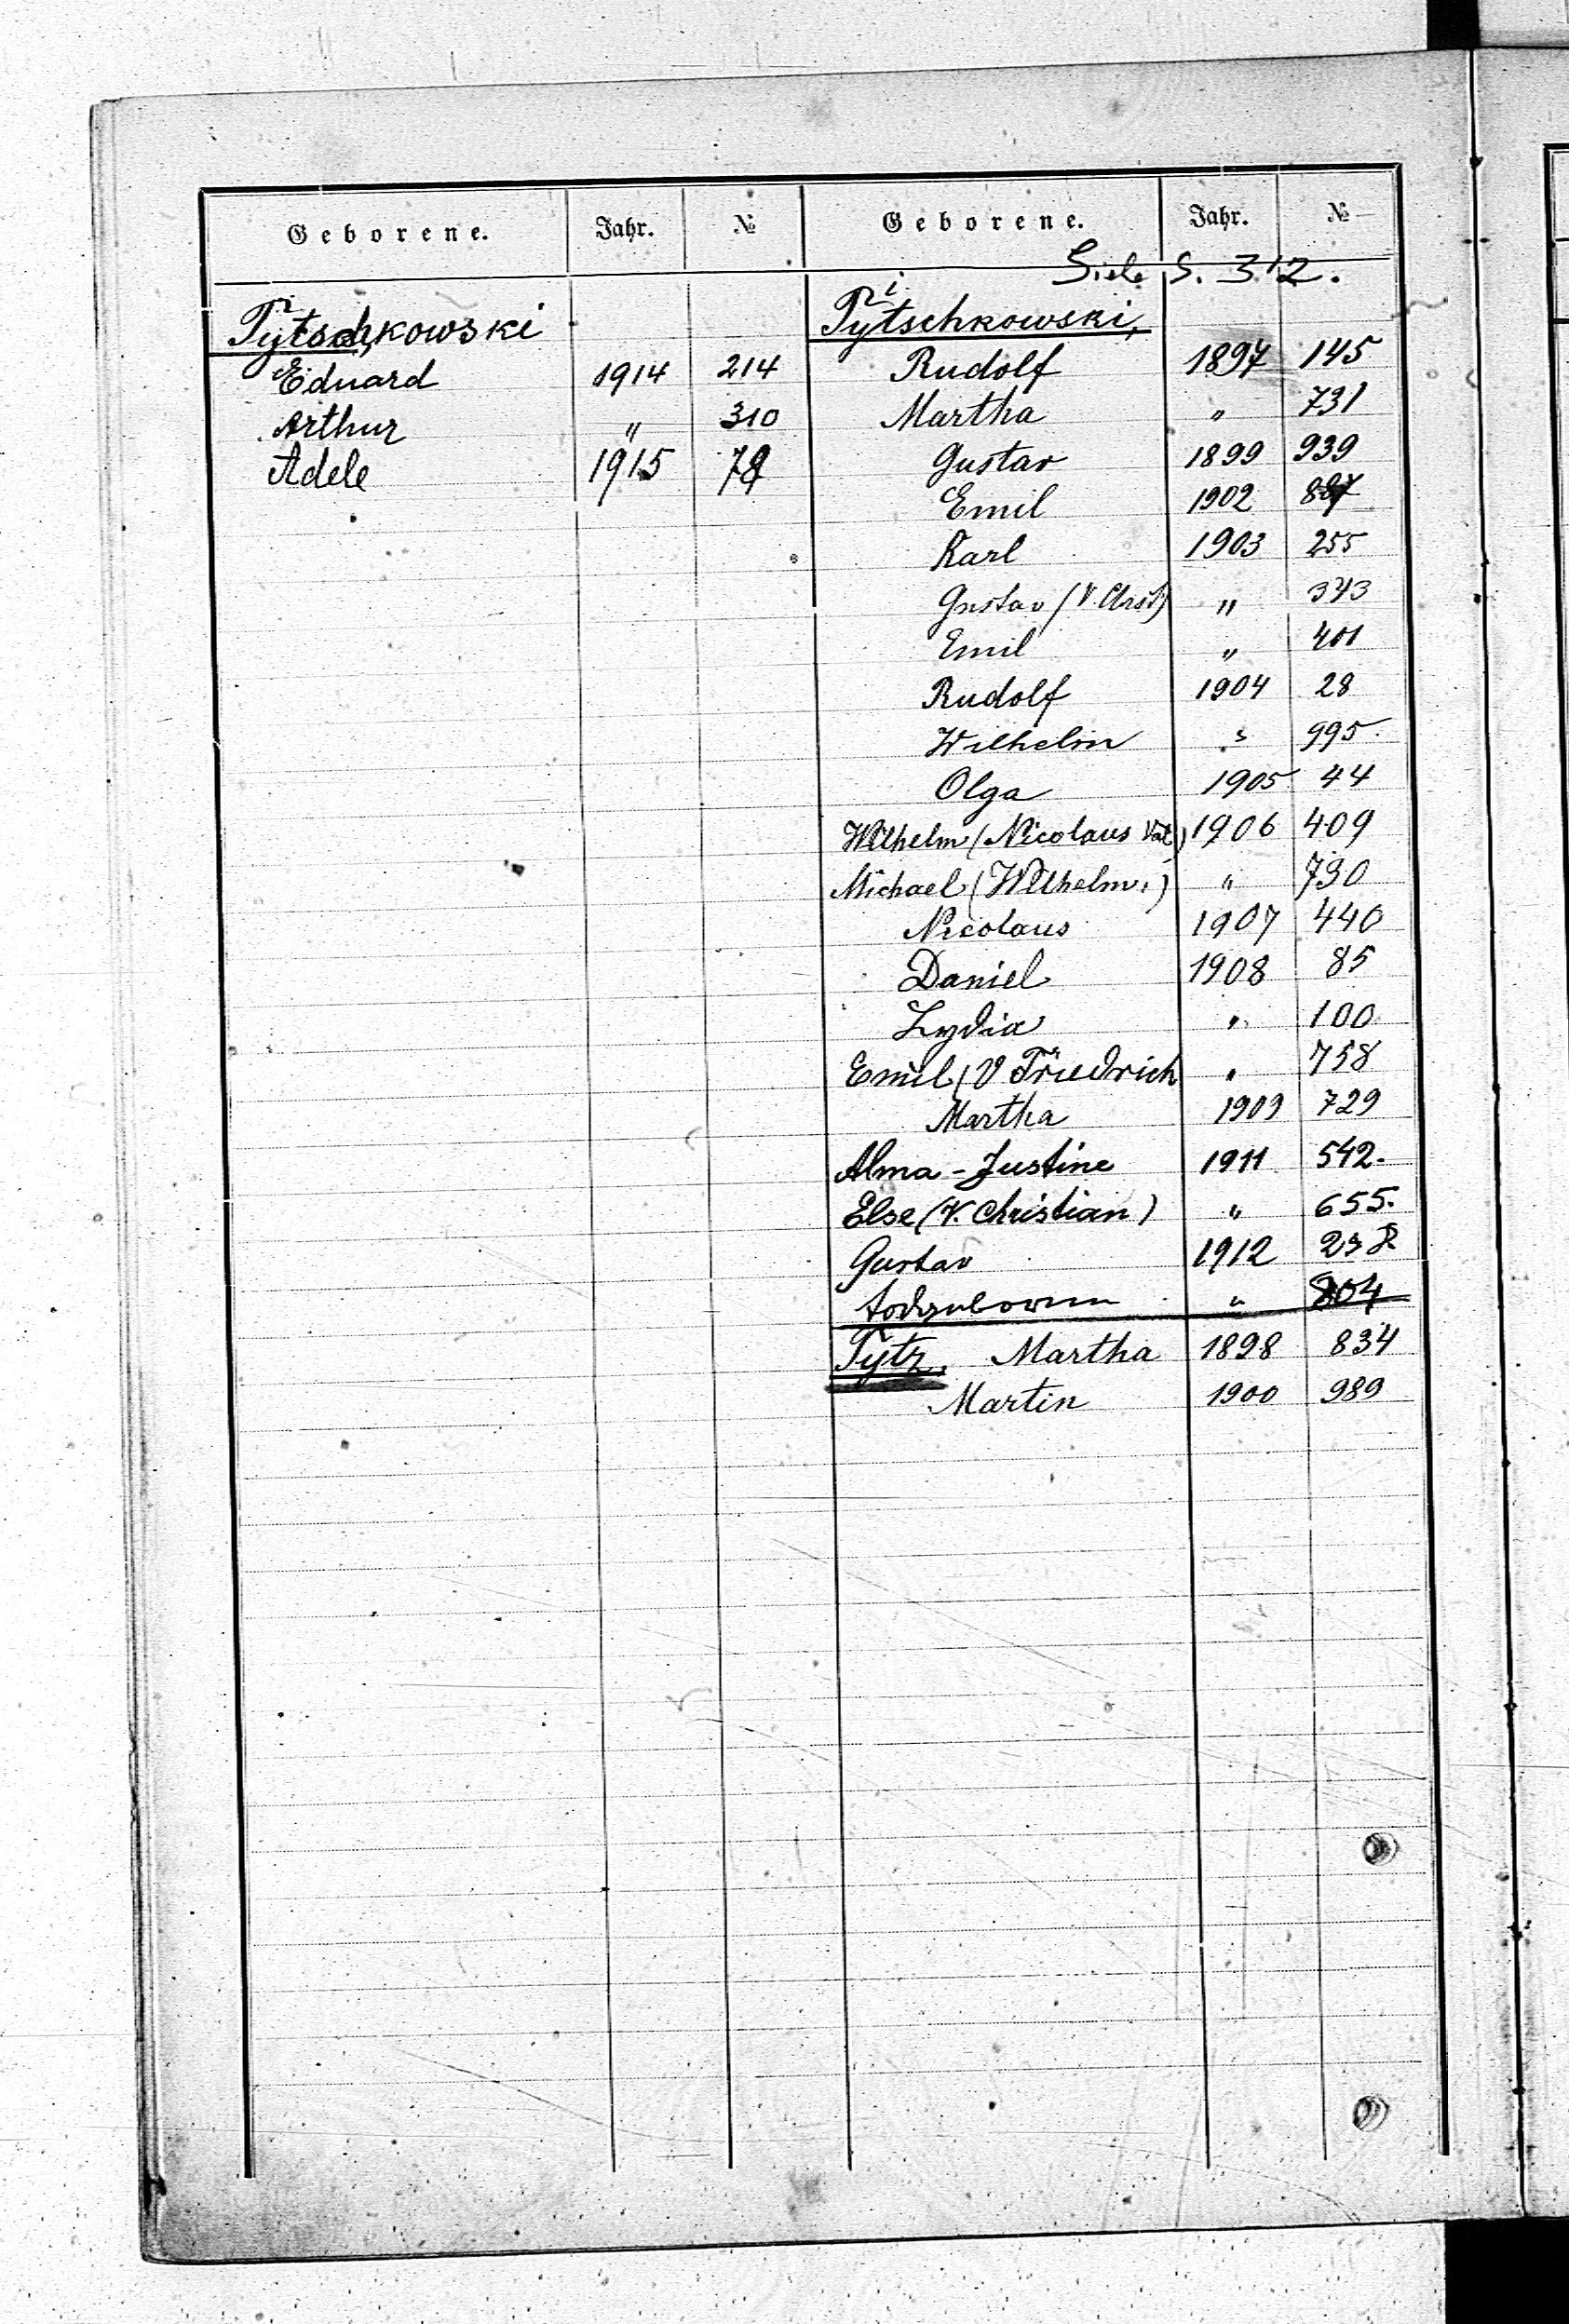 Geborene. Jahr. №
Tytschkowski
Eduard 1914 214
Arthur " 310
Adele 1915 79
Geborene. Jahr. №
Siehe S. 312.
Tytschkowski,
Rudolf 1897 145
Martha " 731
Gustav 1899 939
Emil 1902 887
Karl 1903 255
Gustav (V. Christ) " 343
Emil " 401
Rudolf 1904 28
Wilhelm " 995.
Olga 1905 44
Wilhelm (Nicolaus Vat) 1906 409
Michael (Wilhelm.) " 730
Nicolaus 1907 440
Daniel 1908 85
Lydia " 100
Emil (V Friedrich " 758
Martha 1909 729
Alma-Justine 1911 542.
Else (V. Christian) " 655.
Gustav 1912 238
Todtgeboren " 804
Tytz, Martha 1898 834
Martin 1900 989